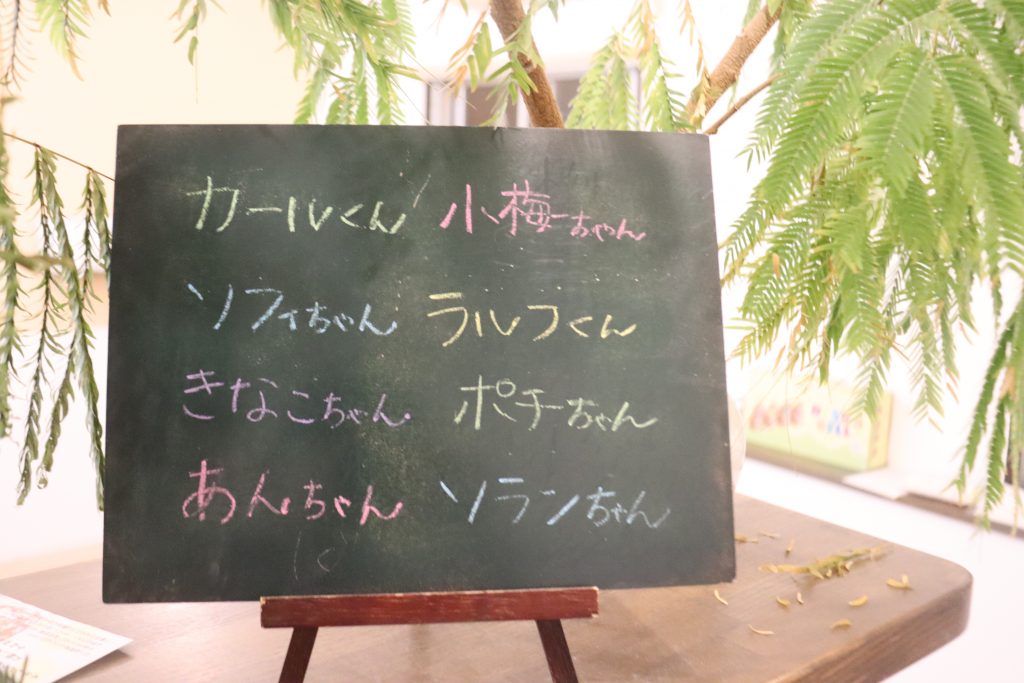 カールくん 小梅ちゃん
ソフィちゃん ラルフくん
きなこちゃん ポチーちゃん
あんちゃん ソランちゃん